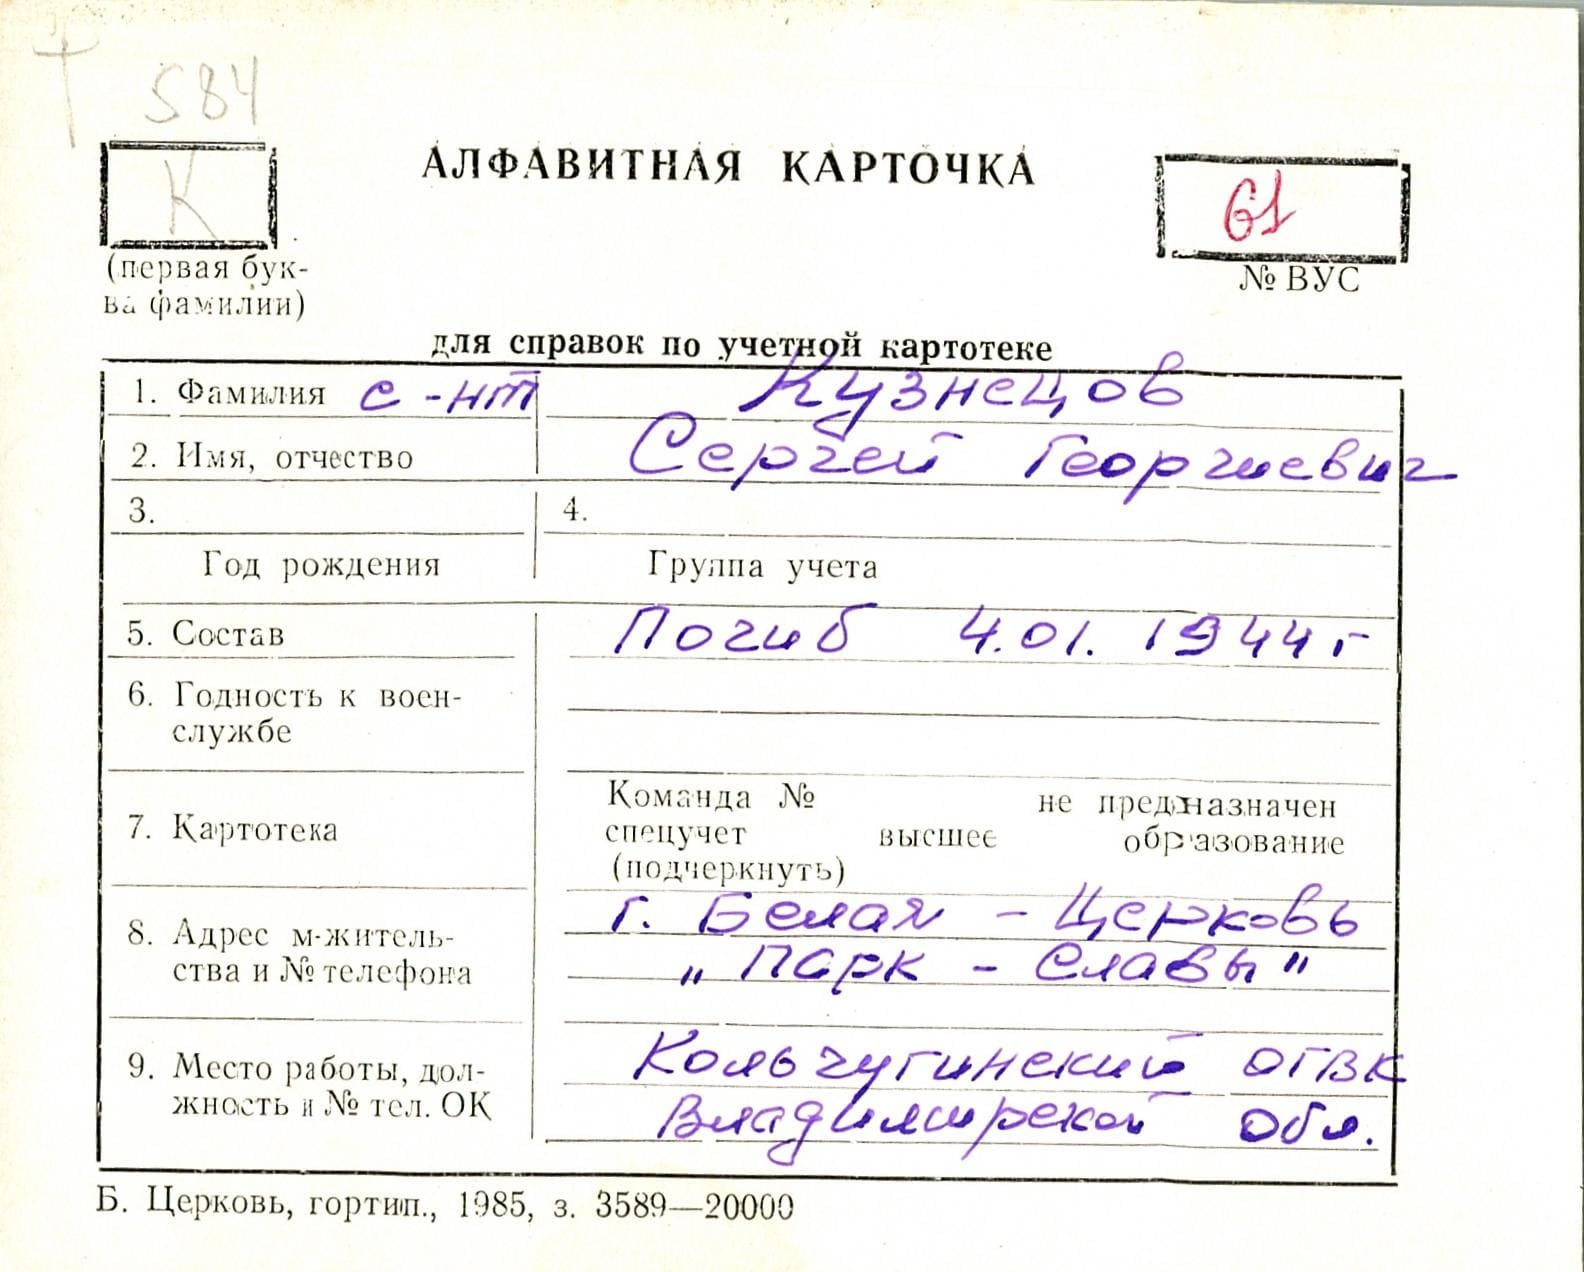 584
К
АЛФАВИТНАЯ КАРТОЧКА
61
(первая бук-
ва фамилии)
№ ВУС
для справок по учетной картотеке
1. Фамилия с-нт Кузнецов
2. Имя, отчество Сергей Георгиевич
3. 4.
Год рождения Группа учета
5. Состав Погиб 4.01.1944 г
6. Годность к воен-
службе
Команда № не предназначен
7. Картотека спецучет высшее образование
(подчеркнуть)
г. Белая - Церковь
8. Адрес м-житель-
ства и № телефона „Парк - Славы"
9. Место работы, дол- Кольчугинский ОГВК
жность и № тел. ОК Владимирской обл.
Б. Церковь, гортип., 1985, з. 3589—20000